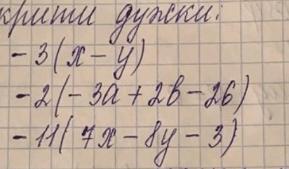 крити дужки:
-3(x-y)
-2(-3a+2b-26)
-11(7x-8y-3)